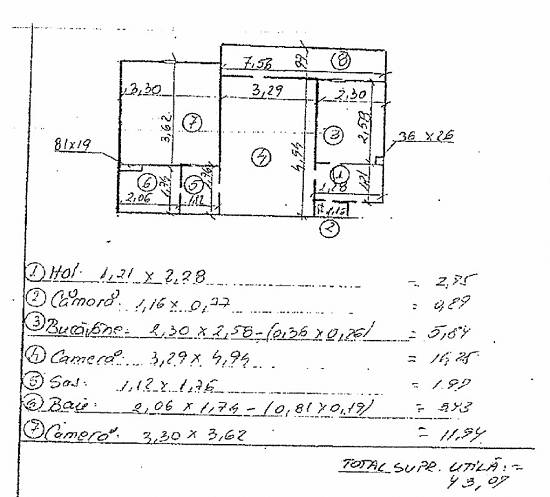 7,56
8
3,30
3,29
2,30
3,62
7
2,58
3
36 x 26
81x19
4
4,94
6
1,74
5
1
1,21
2,06
1,12
2
1 Hol: 1,21 x 2,28 =
2 Cămară: 1,16 x 0,77 =
3 Bucătărie: 2,30 x 2,58 - (0,36 x 0,26) = 5,84
4 Cameră: 3,29 x 4,94 = 16,25
5 Sas: 1,12 x 1,76 =
6 Baie: 2,06 x 1,74 - (0,81 x 0,19) = 3,43
7 Cameră: 3,30 x 3,62 = 11,94
TOTAL SUPR. UTILĂ: =
43,07